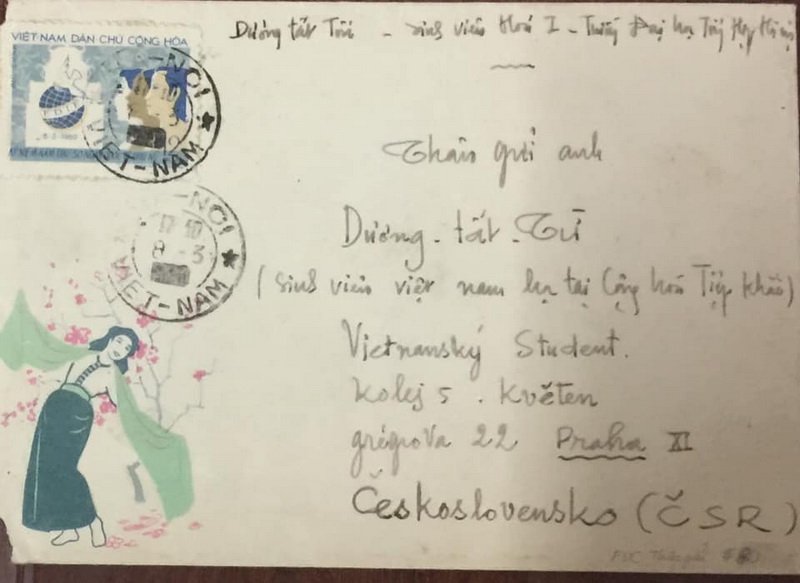 Dương tất Tài - sinh viên Hoá I - Trường Đại học Tổng Hợp Hà nội
VIỆT-NAM DÂN CHỦ CỘNG HÒA
8-3-1960
HA-NOI
VIET-NAM
HA-NOI
17-10
8-3
VIET-NAM
Thân gửi anh
Dương-tất-Từ
(sinh viên việt nam học tại Cộng hoà Tiệp khắc)
Vietnanský Student.
Kolej 5. Květen
grégrova 22 Praha XI
Československo (ČSR)